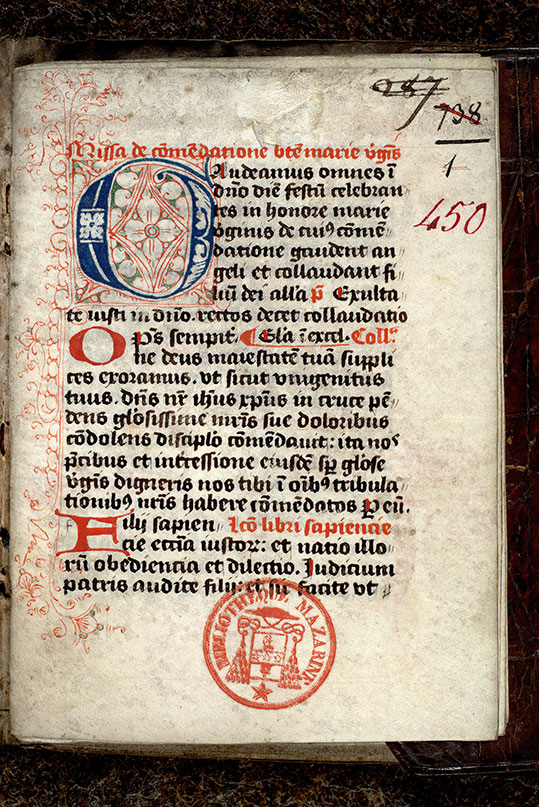 287
738
1
450
Missa de cōmēdatione btē marie v̄gīs
Gaudeamus omnes ī
dn̄o diē festū celebran
tes in honore marie
v̄ginis de cuiꝰ cōmē
datione gaudent an
geli et collaudant fi
liū dei all'a p̄ Exulta
te iusti in dn̄o. rectos decet collaudatio
Op̄s sempit̄. Gl'a ī excel. Coll'
ne deus maiestatē tuā suppli
ces exoramus. vt sicut vnigenitus
tuus. dn̄s nr̄ ihūs xp̄us in cruce pē
dens gl'osissime mr̄is sue doloribus
cōdolens discipl'o cōmēdauit: ita nos
p̄cibus et int̄cessione eiusdē sp̄ gl'ose
v̄gīs digneris nos tibi ī oībꝰ tribula
tionibꝰ nr̄is habere cōmēdatos ꝑ eū.
Filij sapien Lc̄o libri sapiencie
cie ecc̄ia iustorꝝ: et natio illo
rū obediencia et dilectio. Iudicium
patris audite filij: et sic facite vt
BIBLIOTHEQUE MAZARINE